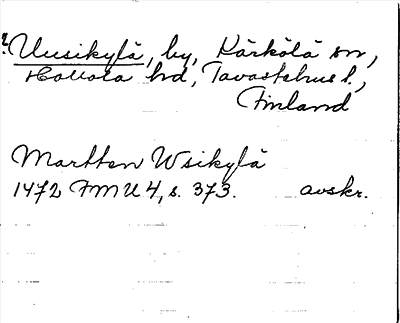 ? Uusikylä, by, Kärkölä sn,
Hollola hd, Tavastehus l.,
Finland
Martten Wsikylä
1472 FMU 4, s. 373. avskr.